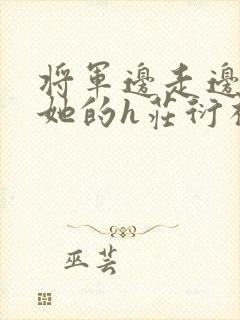 將軍邊走邊
她的h莊衍
巫芸